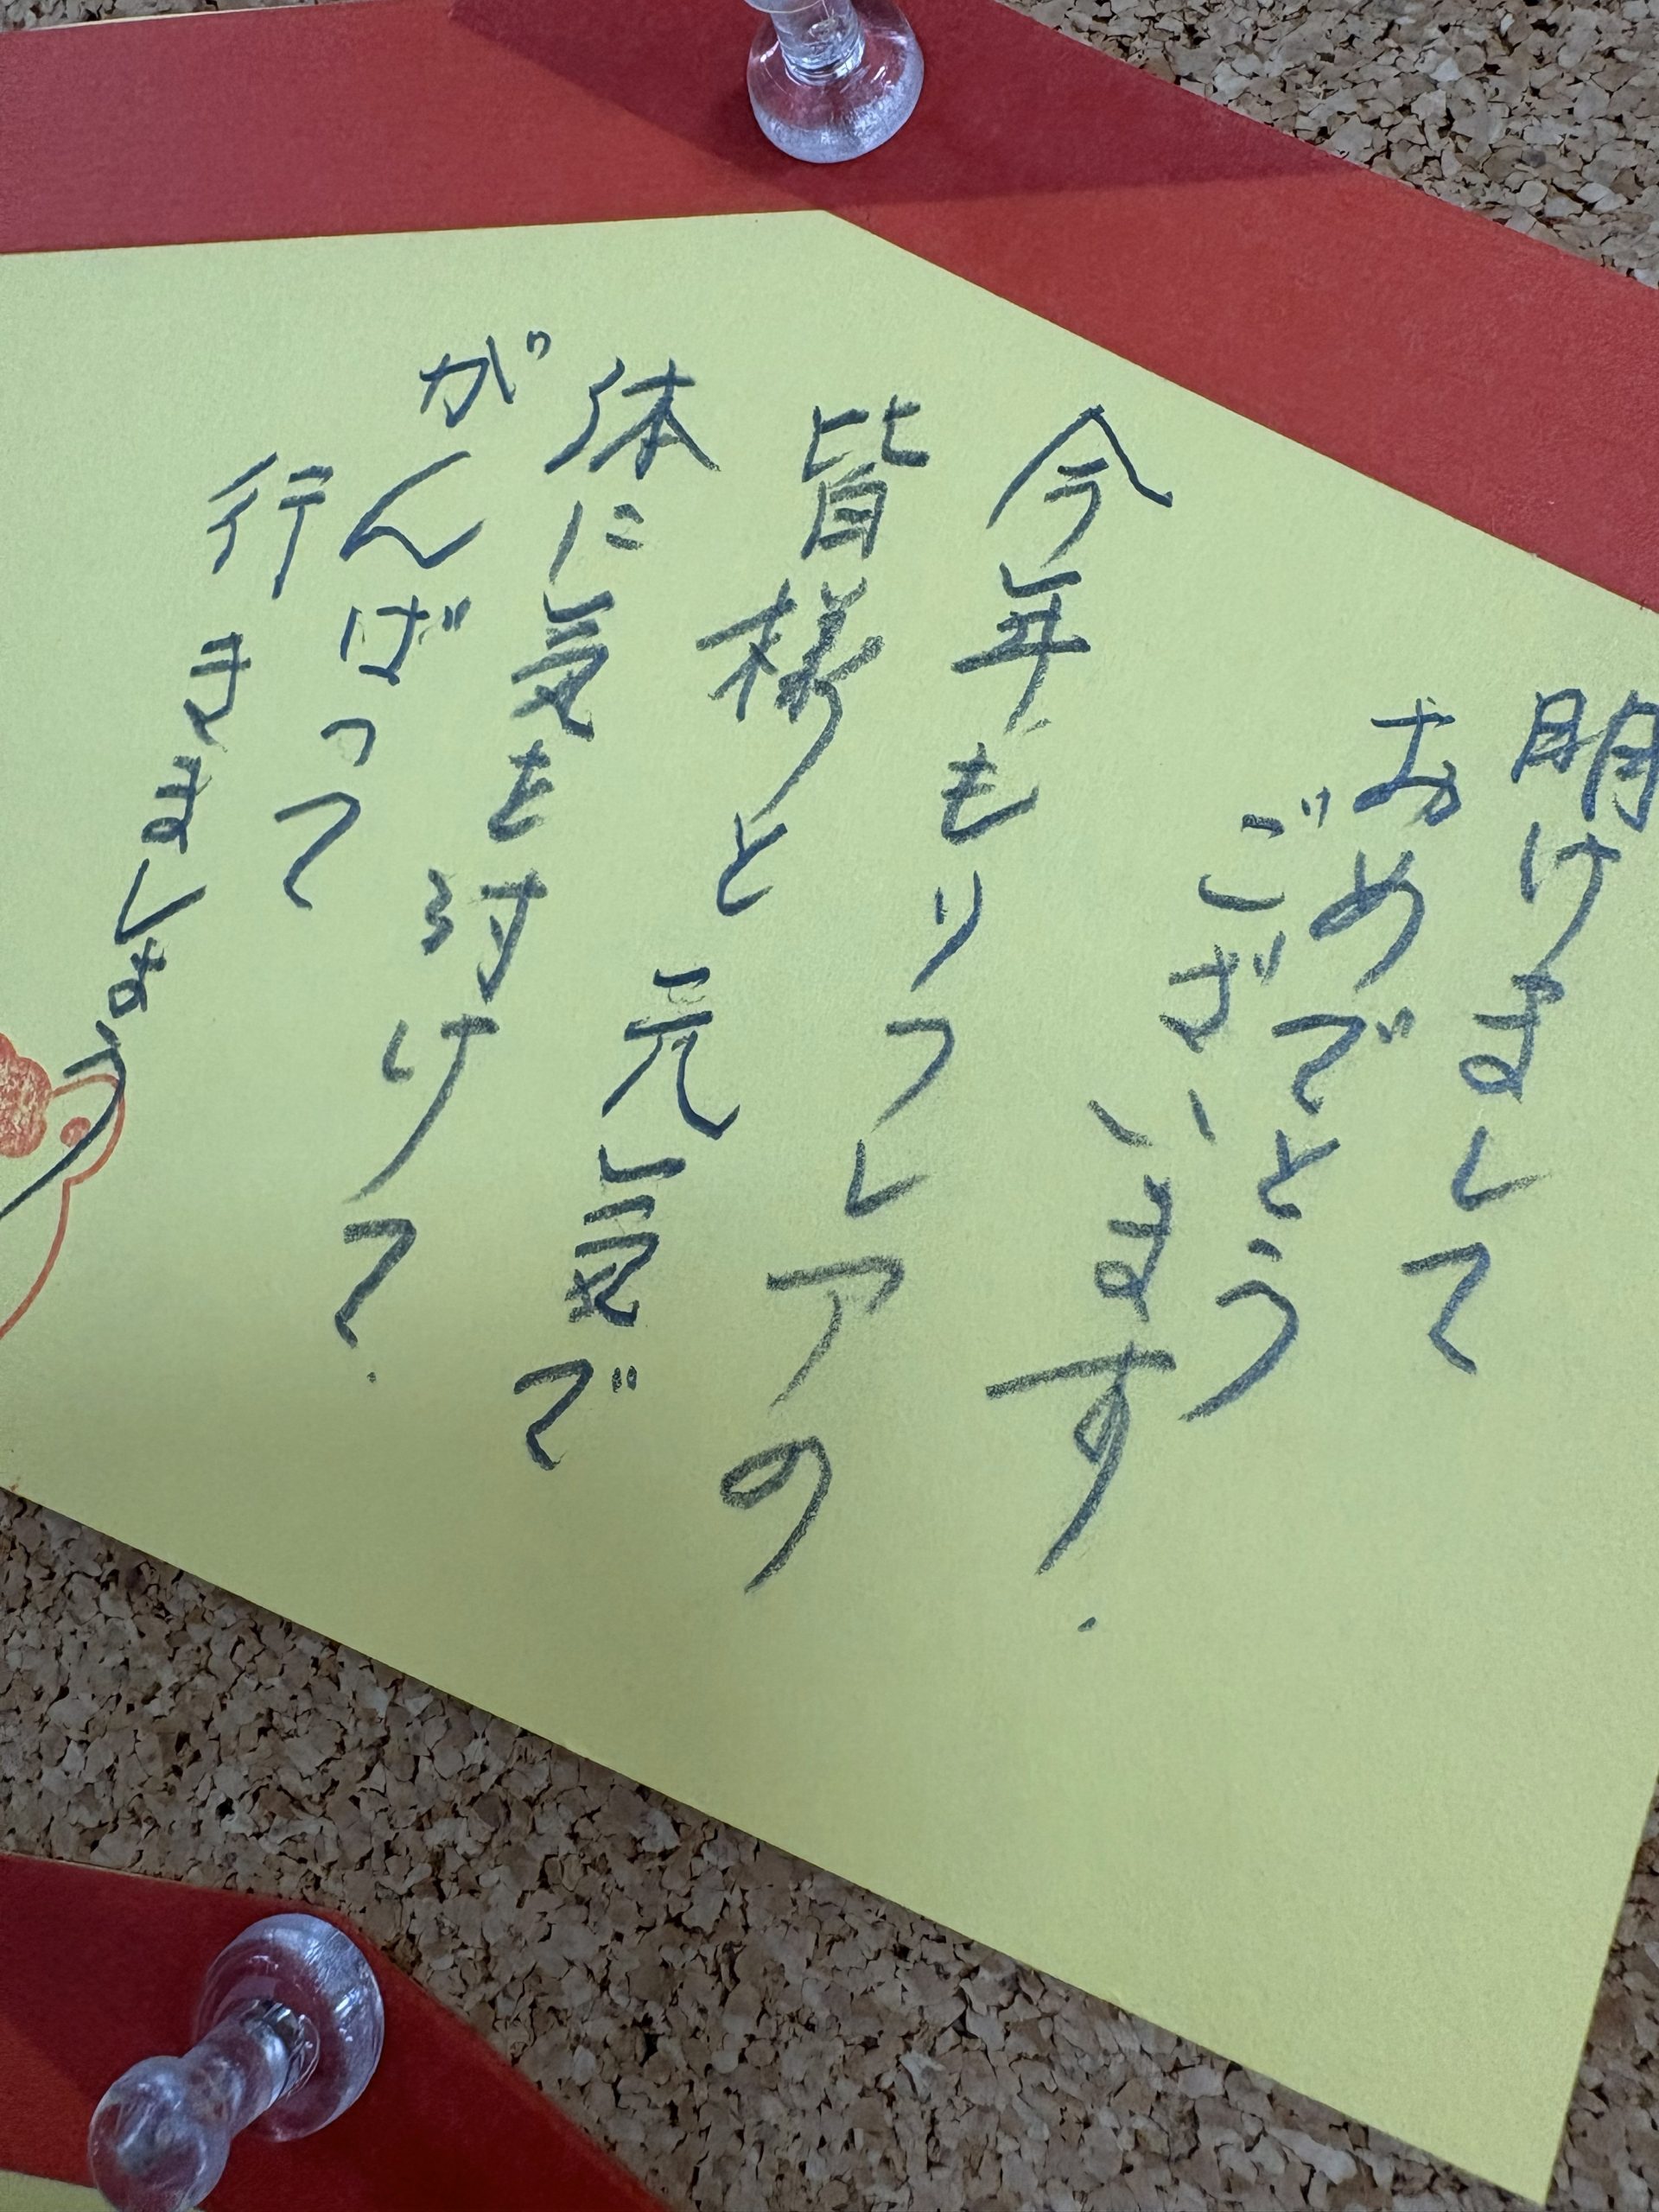 明けまして
おめでとう
ございます.
今年もリフレアの
皆様と元気で
体に気を付けて.
がんばって
行きましょう